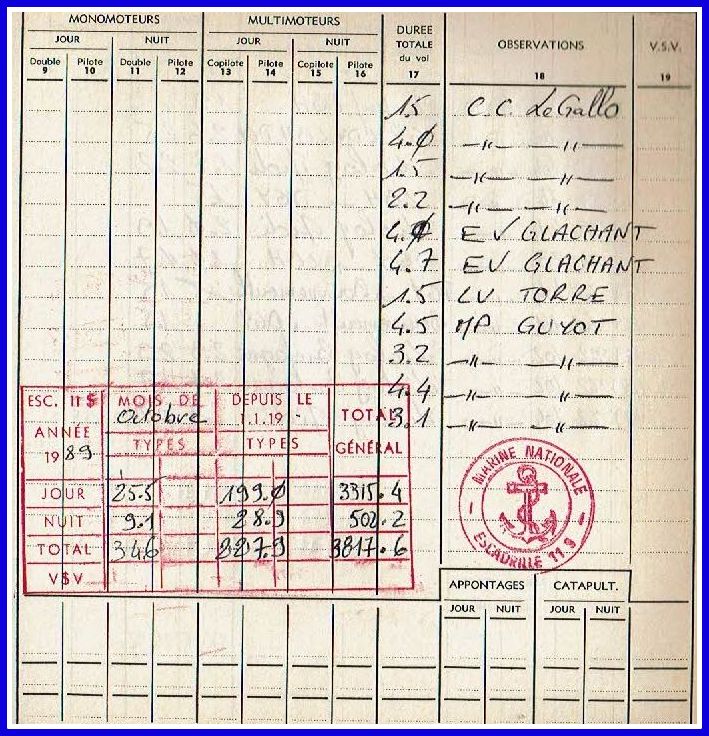 MONOMOTEURS MULTIMOTEURS DUREE TOTALE du vol OBSERVATIONS V.S.V.
JOUR NUIT JOUR NUIT
Double Pilote Double Pilote Copilote Pilote Copilote Pilote
9 10 11 12 13 14 15 16 17 18 19
1.5 C.C. Le Gallo
4.0 —〃— —〃—
1.5 —〃— —〃—
2.2 —〃— —〃—
4.0 EV GLACHANT
4.7 EV GLACHANT
1.5 LV TORRE
4.5 MP GUYOT
3.2 —〃— —〃—
4.4 —〃— —〃—
3.1 —〃— —〃—
ESC. 11 S MOIS DE Octobre DEPUIS LE 1.1.19 - TOTAL GÉNÉRAL
ANNÉE 1989 TYPES TYPES
JOUR 25.5 199.0 3315.4
NUIT 9.1 28.9 502.2
TOTAL 34.6 227.9 3817.6
V$V
MARINE NATIONALE
ESCADRILLE 11 S
APPONTAGES CATAPULT.
JOUR NUIT JOUR NUIT